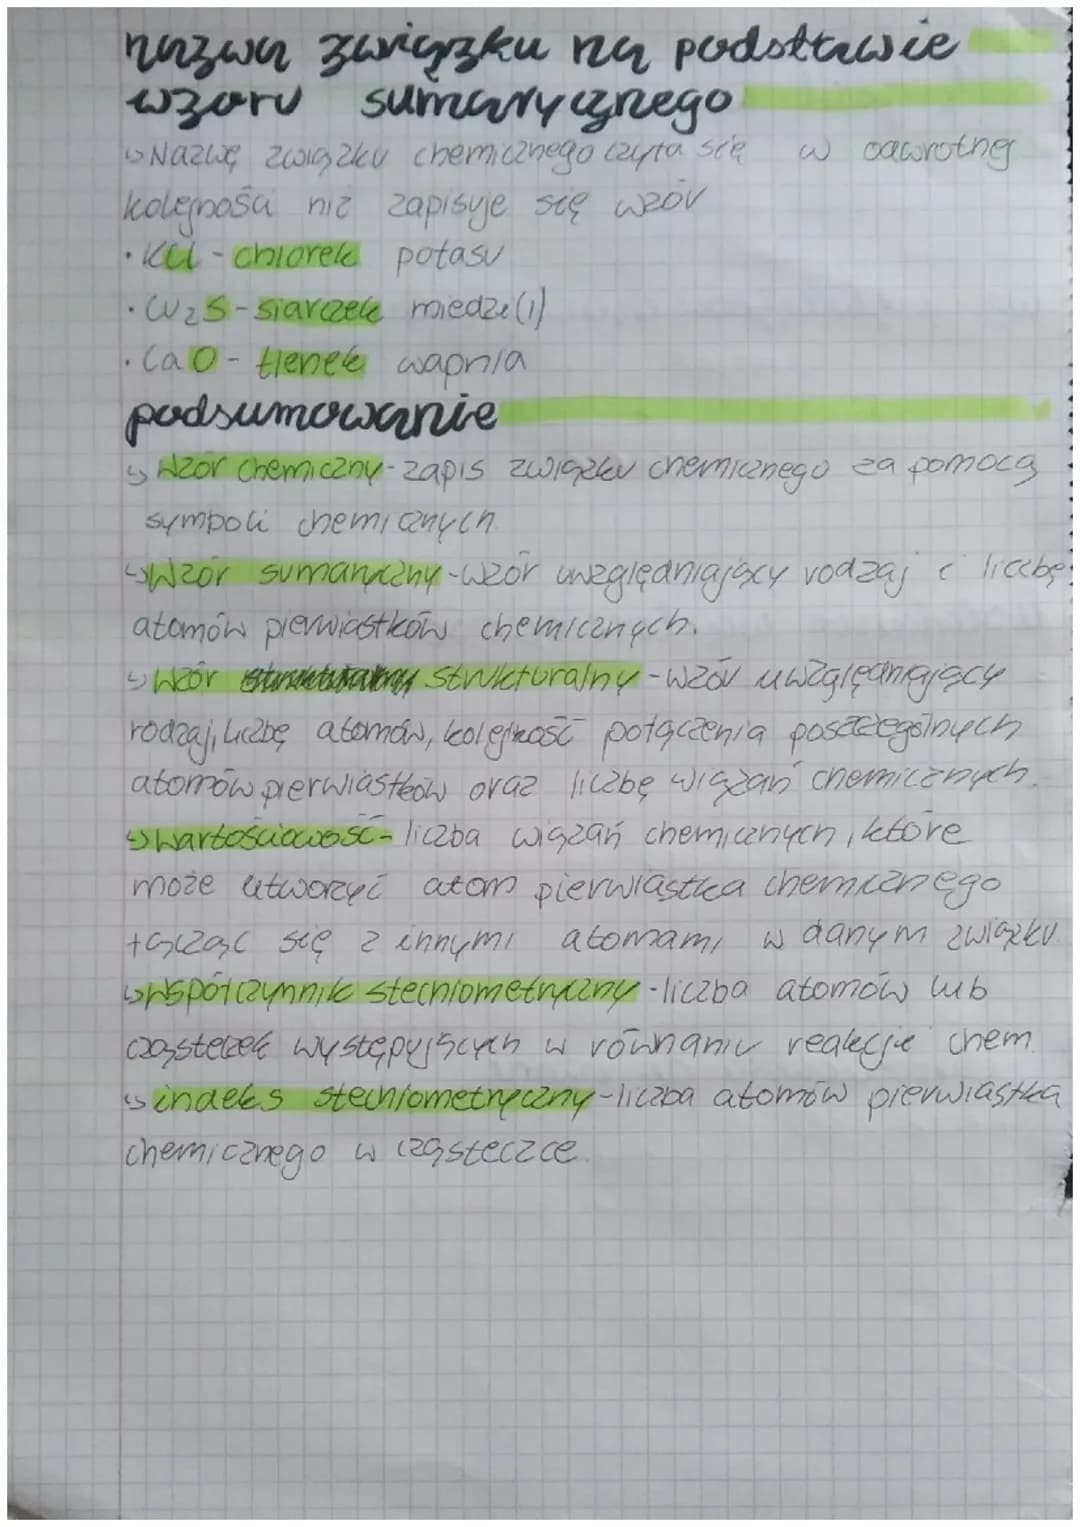 nazwa związku na podstawie
wzoru sumarycznego
↳ Nazwę związku chemicznego czyta się w odwrotnej
kolejności niż zapisuje się wzór
· KCl - chlorek potasu
· Cu2S - siarczek miedzi(I)
· CaO - tlenek wapnia
podsumowanie
↳ Wzór chemiczny - zapis związku chemicznego za pomocą
symboli chemicznych
↳ Wzór sumaryczny - wzór uwzględniający rodzaj i liczbę
atomów pierwiastków chemicznych.
↳ Wzór strukturalny - wzór uwzględniający
rodzaj, liczbę atomów, kolejność połączenia poszczególnych
atomów pierwiastków oraz liczbę wiązań chemicznych.
↳ Wartościowość - liczba wiązań chemicznych, które
może utworzyć atom pierwiastka chemicznego
łącząc się z innymi atomami w danym związku
↳ Współczynnik stechiometryczny - liczba atomów lub
cząsteczek występujących w równaniu reakcji chem.
↳ indeks stechiometryczny - liczba atomów pierwiastka
chemicznego w cząsteczce.